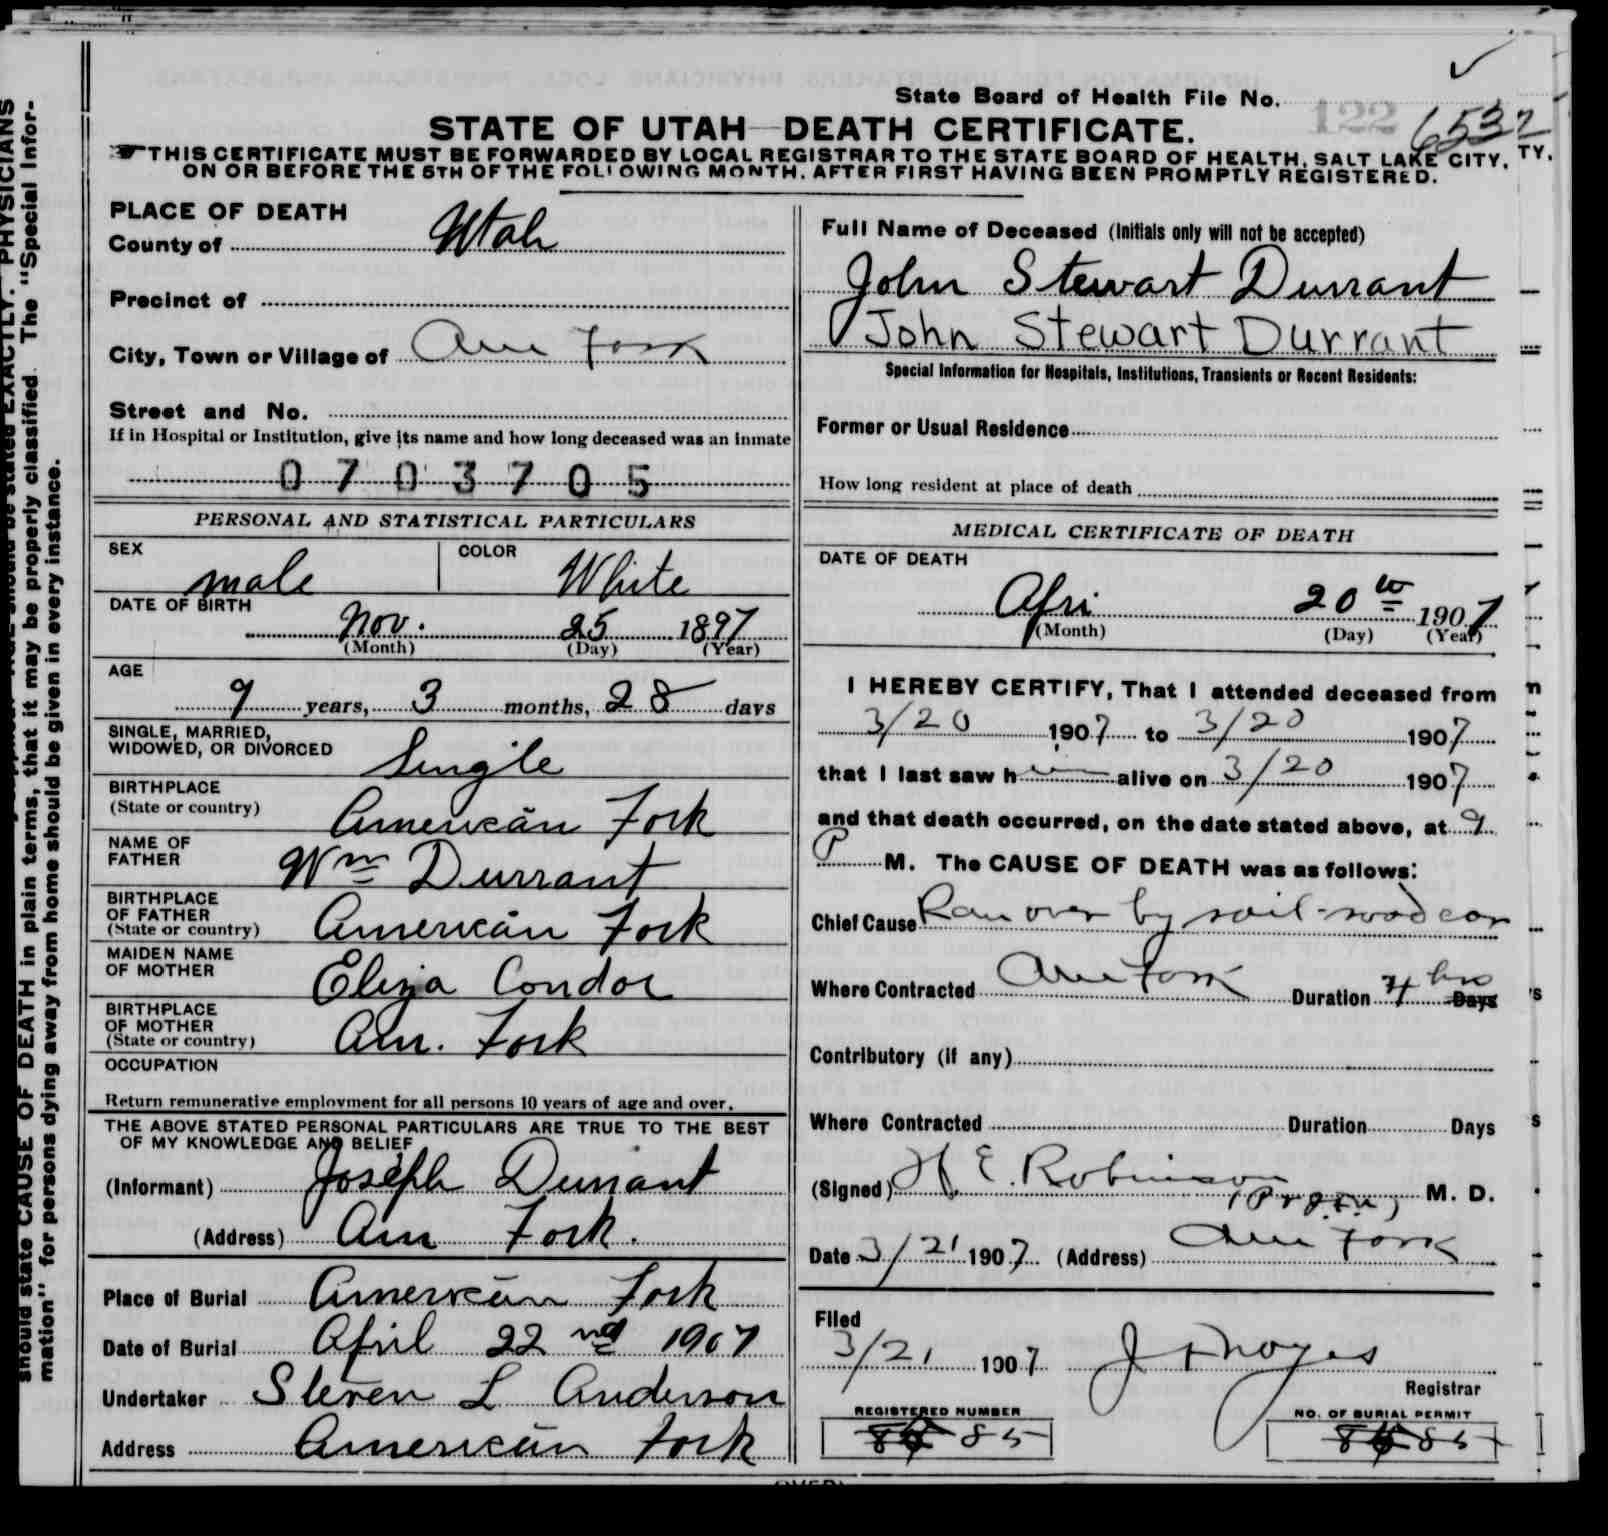 State Board of Health File No. 122 6532
STATE OF UTAH—DEATH CERTIFICATE.
THIS CERTIFICATE MUST BE FORWARDED BY LOCAL REGISTRAR TO THE STATE BOARD OF HEALTH, SALT LAKE CITY, TY.
ON OR BEFORE THE 5TH OF THE FOLLOWING MONTH, AFTER FIRST HAVING BEEN PROMPTLY REGISTERED.
PLACE OF DEATH
County of Utah
Precinct of
City, Town or Village of Am Fork
Street and No.
If in Hospital or Institution, give its name and how long deceased was an inmate
0703705
PERSONAL AND STATISTICAL PARTICULARS
SEX male COLOR White
DATE OF BIRTH Nov. 25 1897
(Month) (Day) (Year)
AGE
9 years, 3 months, 28 days
SINGLE, MARRIED,
WIDOWED, OR DIVORCED Single
BIRTHPLACE
(State or country) American Fork
NAME OF
FATHER Wm Durrant
BIRTHPLACE
OF FATHER
(State or country) American Fork
MAIDEN NAME
OF MOTHER Eliza Condor
BIRTHPLACE
OF MOTHER
(State or country) Am. Fork
OCCUPATION
Return remunerative employment for all persons 10 years of age and over.
THE ABOVE STATED PERSONAL PARTICULARS ARE TRUE TO THE BEST
OF MY KNOWLEDGE AND BELIEF
(Informant) Joseph Durrant
(Address) Am Fork.
Place of Burial American Fork
Date of Burial April 22nd 1907
Undertaker Steven L Anderson
Address American Fork
Full Name of Deceased (Initials only will not be accepted)
John Stewart Durrant
John Stewart Durrant
Special Information for Hospitals, Institutions, Transients or Recent Residents:
Former or Usual Residence
How long resident at place of death
MEDICAL CERTIFICATE OF DEATH
DATE OF DEATH
Apri 20th 1907
(Month) (Day) (Year)
I HEREBY CERTIFY, That I attended deceased from
3/20 1907 to 3/20 1907
that I last saw him alive on 3/20 1907
and that death occurred, on the date stated above, at 9
P M. The CAUSE OF DEATH was as follows:
Chief Cause Ran over by rail-road car
Where Contracted Am Fork Duration 4 hrs Days
Contributory (if any)
Where Contracted Duration Days
(Signed) H E. Robinson M. D.
Date 3/21 1907 (Address) Am Fork
Filed
3/21 1907 Registrar
REGISTERED NUMBER NO. OF BURIAL PERMIT
85 85
should state CAUSE OF DEATH in plain terms, that it may be properly classified. The "Special Infor-
mation" for persons dying away from home should be given in every instance.